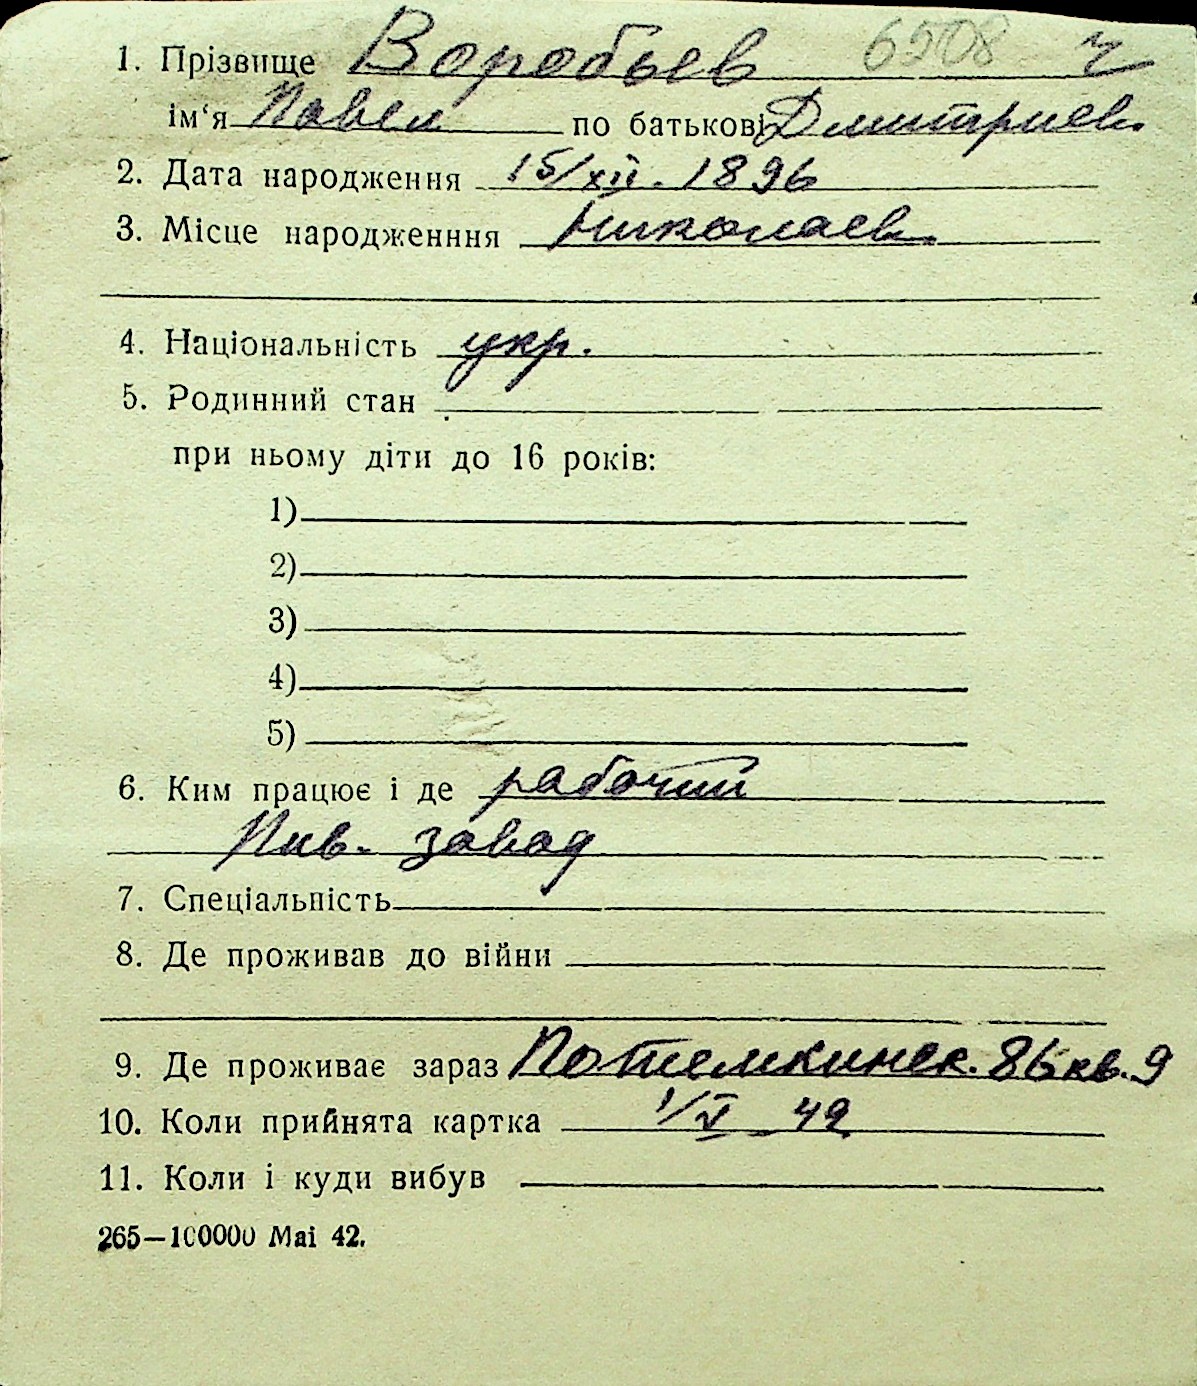 1. Прізвище Воробьев 6508 ч
ім'я Павел по батькові Дмитриев.
2. Дата народження 15/XII. 1896
3. Місце народженння Николаев
4. Національність укр.
5. Родинний стан
при ньому діти до 16 років:
1)
2)
3)
4)
5)
6. Ким працює і де рабочий
Пив. завод
7. Спеціальність
8. Де проживав до війни
9. Де проживає зараз Потемкинск. 86 кв. 9
10. Коли прийнята картка 1/V 42
11. Коли і куди вибув
265—100000 Mai 42.